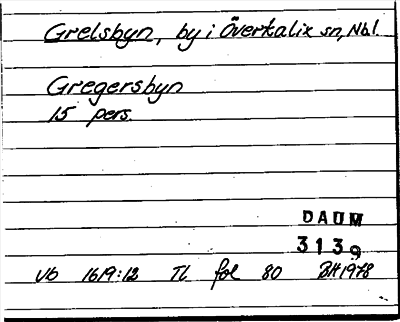 Grelsbyn, by i Övertalix sn, Nbl.
Gregersbyn
15 pers.
DAUM
3139
Vb 1619:12 Tl fol 80 BH 1978